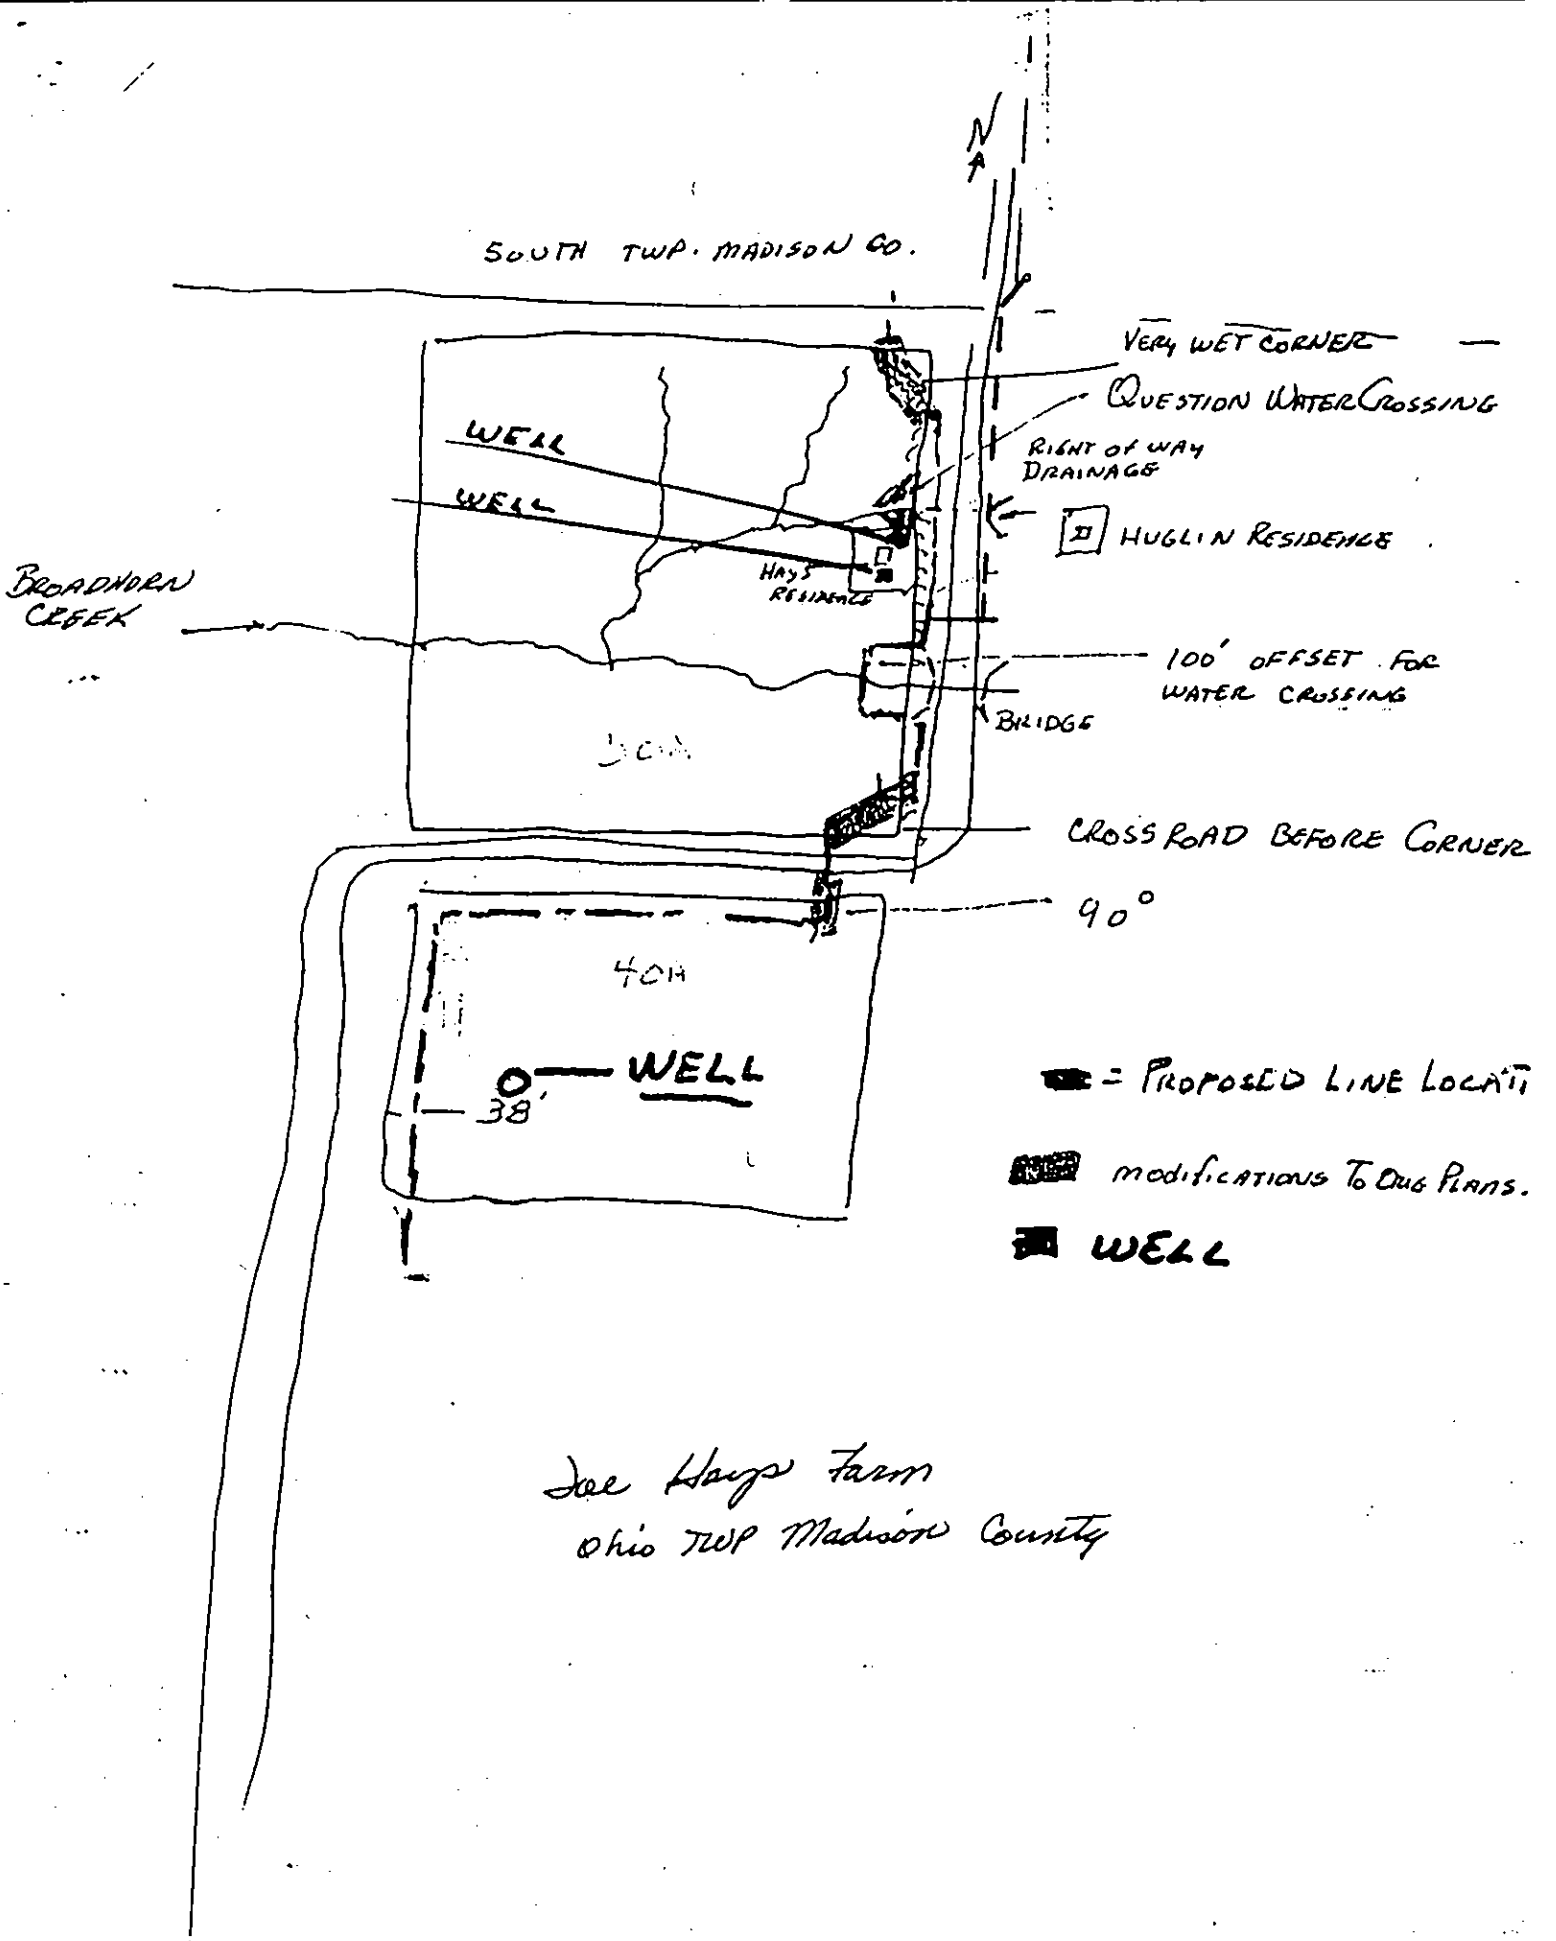 N
SOUTH TWP. MADISON CO.
VERY WET CORNER
QUESTION WATER CROSSING
RIGHT OF WAY
DRAINAGE
WELL
WELL
HUGLIN RESIDENCE
HAYS
RESIDENCE
BROADHORN
CREEK
100' OFFSET FOR
WATER CROSSING
BRIDGE
CROSS ROAD BEFORE CORNER
90°
40A
WELL
38'
= PROPOSED LINE LOCATI
MODIFICATIONS TO PLANS.
WELL
Joe Hays Farm
Ohio TWP Madison County